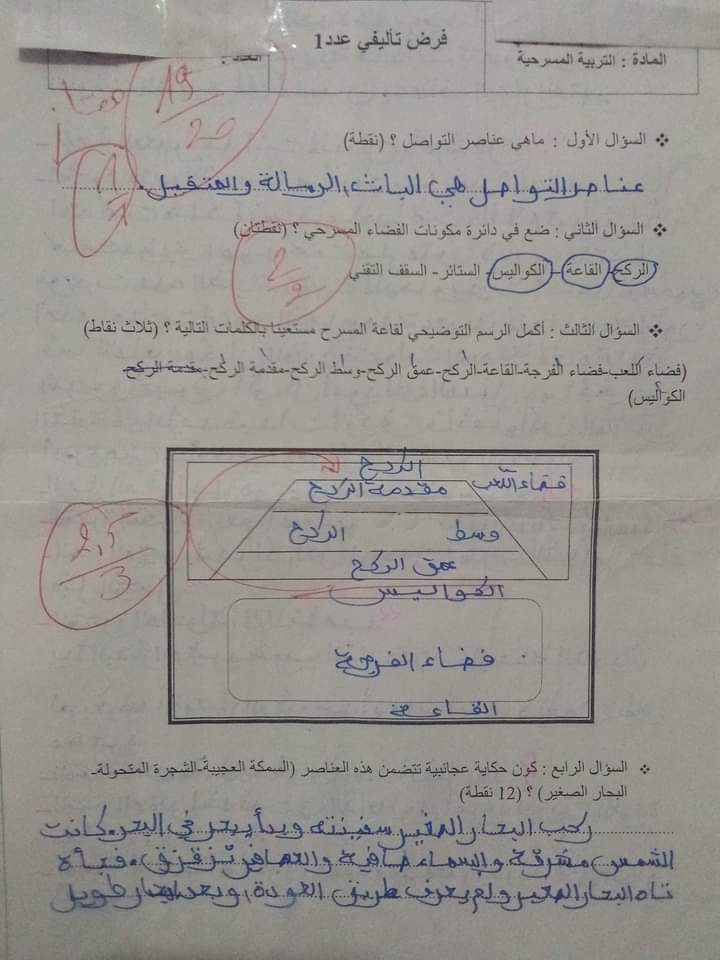 فرض تأليفي عدد1
المادة : التربية المسرحية
19/20
❖ السؤال الأول : ماهي عناصر التواصل ؟ (نقطة)
عناصر التواصل هي الباث، الرسالة والمتقبل.
1/1
❖ السؤال الثاني : ضع في دائرة مكونات الفضاء المسرحي ؟ (نقطتان)
الركح - القاعة - الكواليس - الستائر - السقف التقني
2/2
❖ السؤال الثالث : أكمل الرسم التوضيحي لقاعة المسرح مستعينا بالكلمات التالية ؟ (ثلاث نقاط)
(فضاء اللعب-فضاء الفرجة-القاعة-الركح-عمق الركح-وسط الركح-مقدمة الركح-مقدمة الركح-
الكواليس)
الركح
فضاء اللعب
مقدمة الركح
وسط الركح
عمق الركح
الكواليس
2,5/3
فضاء الفرجة
القاعة
❖ السؤال الرابع : كون حكاية عجائبية تتضمن هذه العناصر (السمكة العجيبة-الشجرة المتحولة-
البحار الصغير) ؟ (12 نقطة)
ركب البحار الصغير سفينته وبدأ يبحر في البحر. كانت
الشمس مشرقة والسماء صافية والعصافر تزقزق. فجأة
تاه البحار الصغير ولم يعرف طريق العودة، وبعد طويل